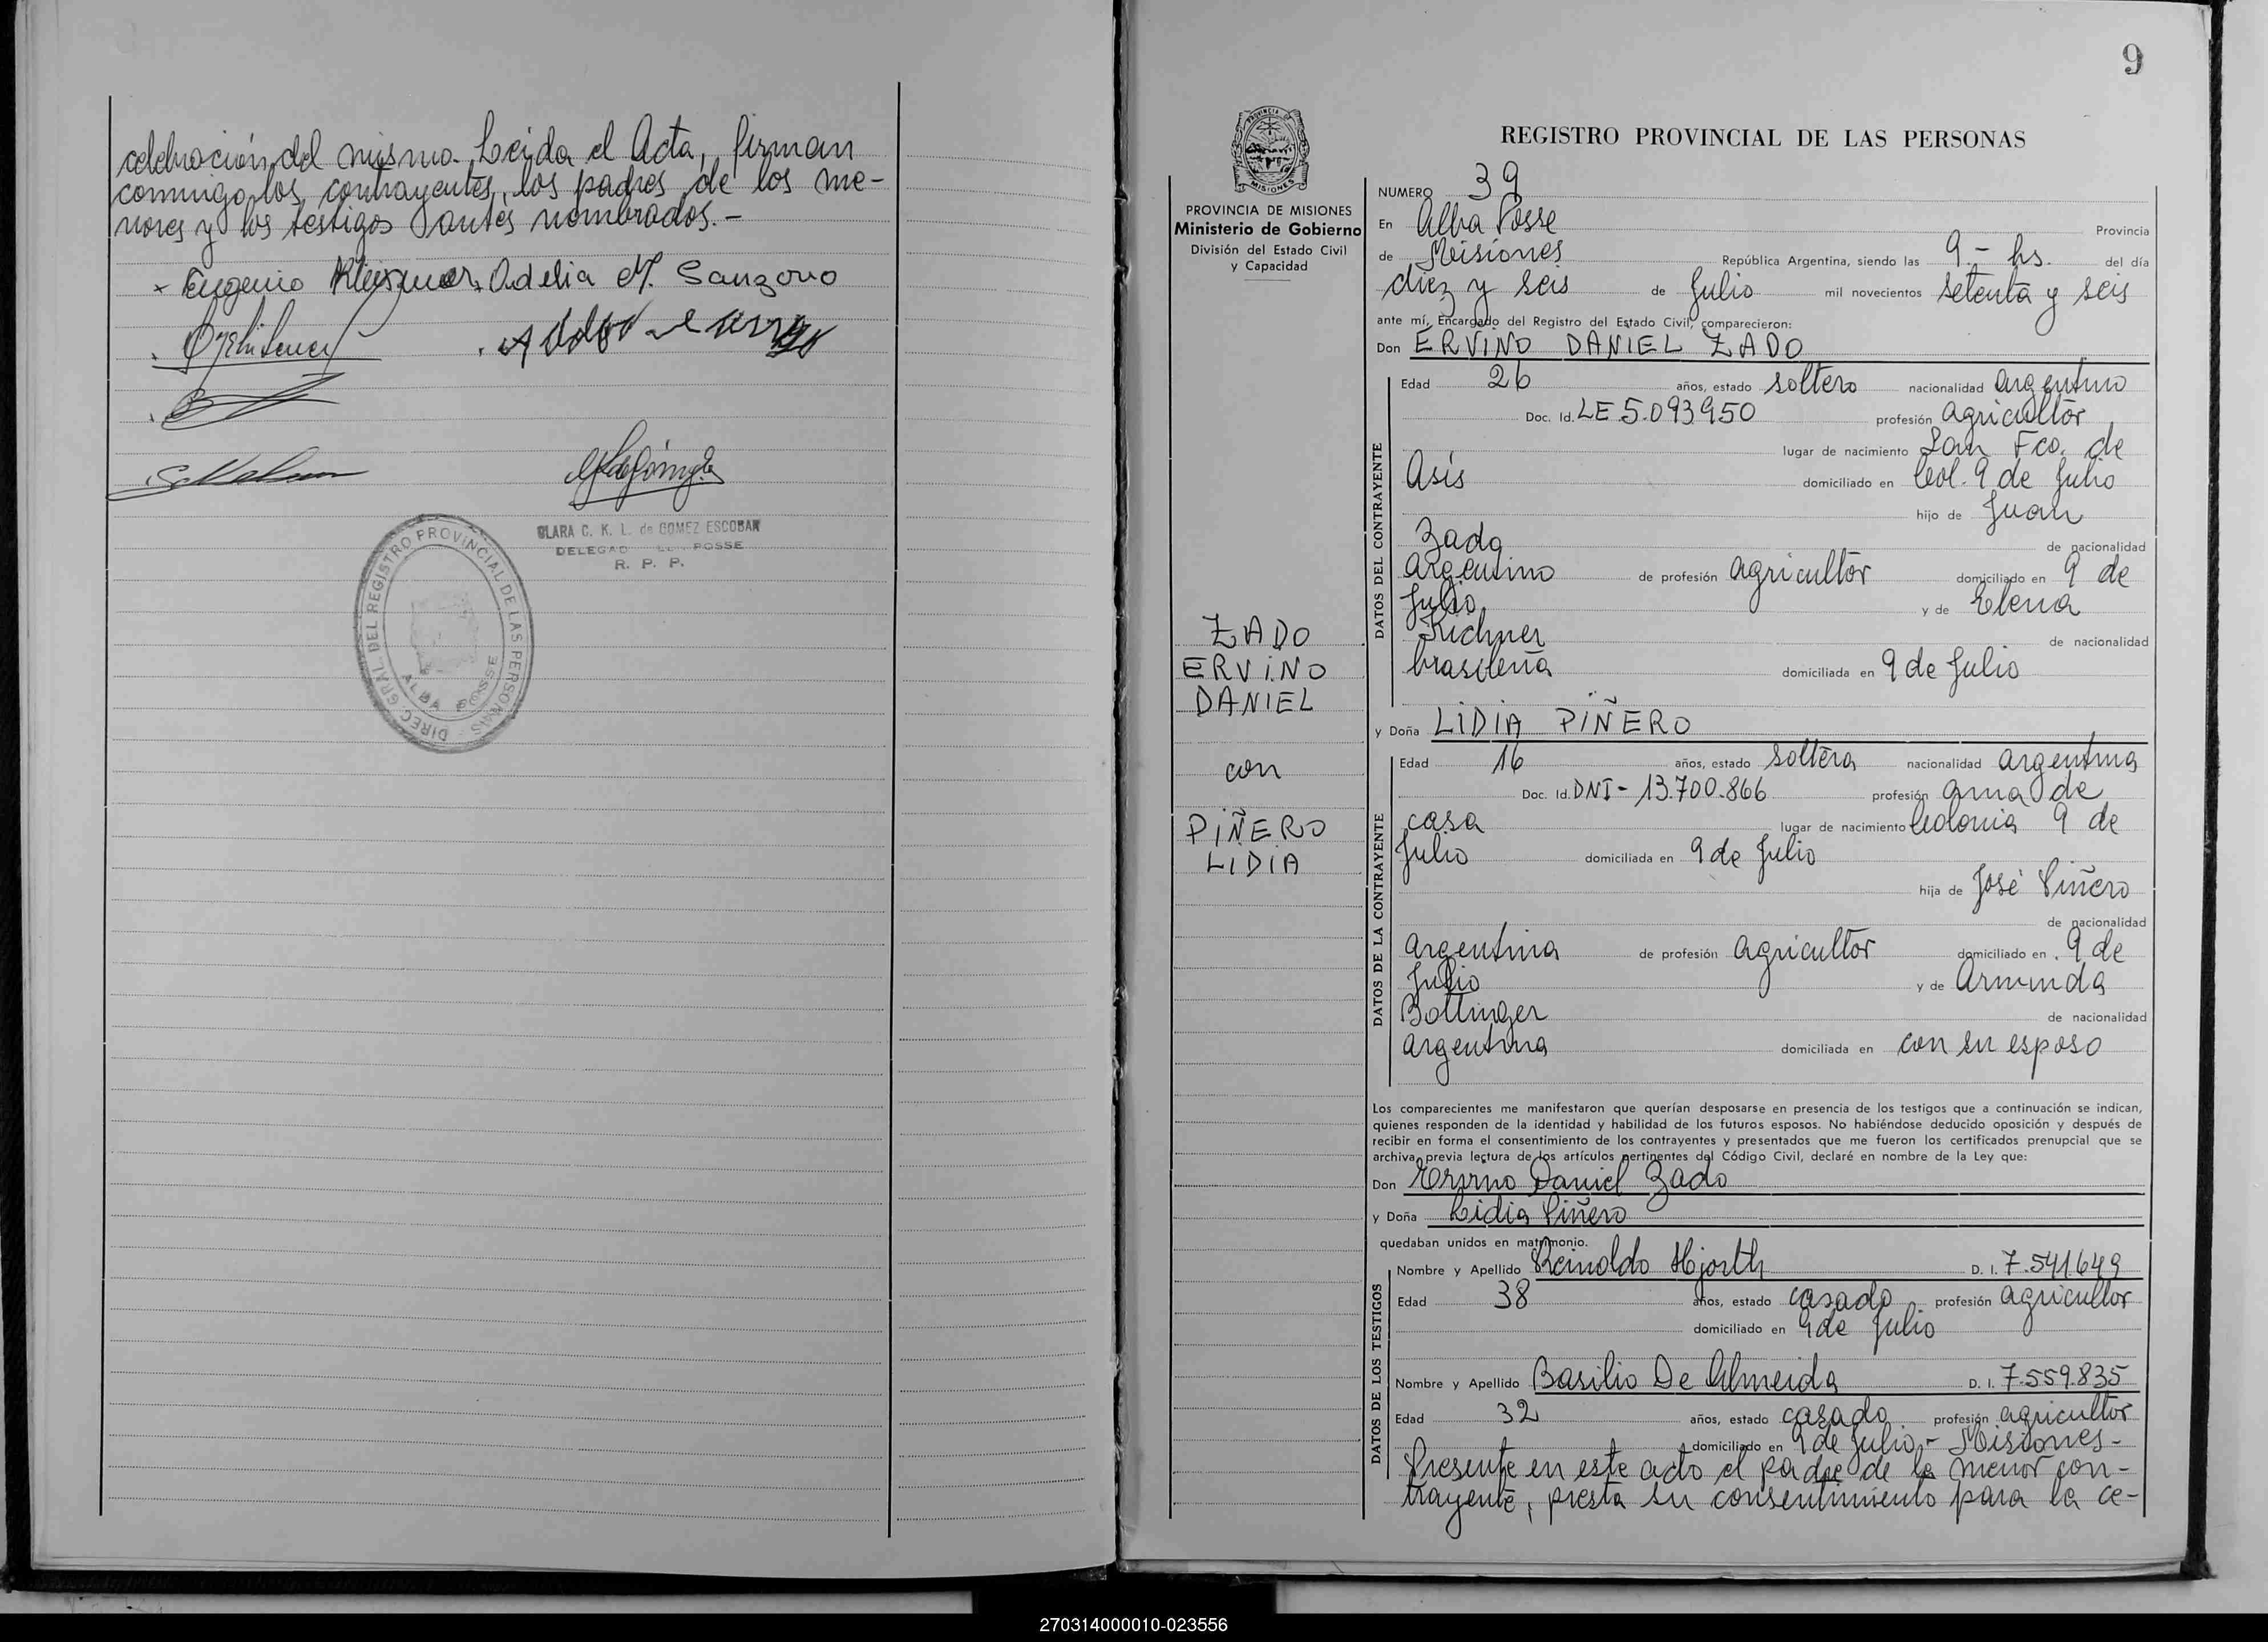 celebración del mismo. Leída el Acta, firman
conmigo los contrayentes, los padres de los me-
nores y los testigos antes nombrados.-
Eugenio Adelia M. Sanzovo
CLARA C. K. L. de GOMEZ ESCOBAR
DELEGAD POSSE
R. P. P.
DIREC. GRAL DEL REGISTRO PROVINCIAL DE LAS PERSONAS
ALBA POSSE
9
REGISTRO PROVINCIAL DE LAS PERSONAS
PROVINCIA DE MISIONES
Ministerio de Gobierno
División del Estado Civil
y Capacidad
ZADO
ERVINO
DANIEL
con
PIÑERO
LIDIA
NUMERO 39
En Alba Posse Provincia
de Misiones República Argentina, siendo las 9.- hs. del día
diez y seis de Julio mil novecientos setenta y seis
ante mí, Encargado del Registro del Estado Civil, comparecieron:
Don ERVINO DANIEL ZADO
DATOS DEL CONTRAYENTE
Edad 26 años, estado soltero nacionalidad argentino
Doc. Id. LE 5.093.950 profesión agricultor
lugar de nacimiento San Fco. de
Asís domiciliado en Col. 9 de Julio
hijo de Juan
Zado de nacionalidad
argentino de profesión agricultor domiciliado en 9 de
Julio y de Elena
Kichner de nacionalidad
brasileña domiciliada en 9 de Julio
y Doña LIDIA PIÑERO
DATOS DE LA CONTRAYENTE
Edad 16 años, estado soltera nacionalidad argentina
Doc. Id. DNI - 13.700.866 profesión ama de
casa lugar de nacimiento Colonia 9 de
Julio domiciliada en 9 de Julio
hija de José Piñero
de nacionalidad
argentina de profesión agricultor domiciliado en 9 de
Julio y de Arminda
Bottinger de nacionalidad
argentina domiciliada en con su esposo
Los comparecientes me manifestaron que querían desposarse en presencia de los testigos que a continuación se indican,
quienes responden de la identidad y habilidad de los futuros esposos. No habiéndose deducido oposición y después de
recibir en forma el consentimiento de los contrayentes y presentados que me fueron los certificados prenupcial que se
archiva, previa lectura de los artículos pertinentes del Código Civil, declaré en nombre de la Ley que:
Don Ervino Daniel Zado
y Doña Lidia Piñero
quedaban unidos en matrimonio.
DATOS DE LOS TESTIGOS
Nombre y Apellido Reinoldo Hjorth D. I. 7.541.649
Edad 38 años, estado casado profesión agricultor
domiciliado en 9 de Julio
Nombre y Apellido Basilio De Almeida D. I. 7.559.835
Edad 32 años, estado casado profesión agricultor
domiciliado en 9 de Julio - Misiones-
Presente en este acto el padre de la menor con-
trayente, presta su consentimiento para la ce-
270314000010-023556